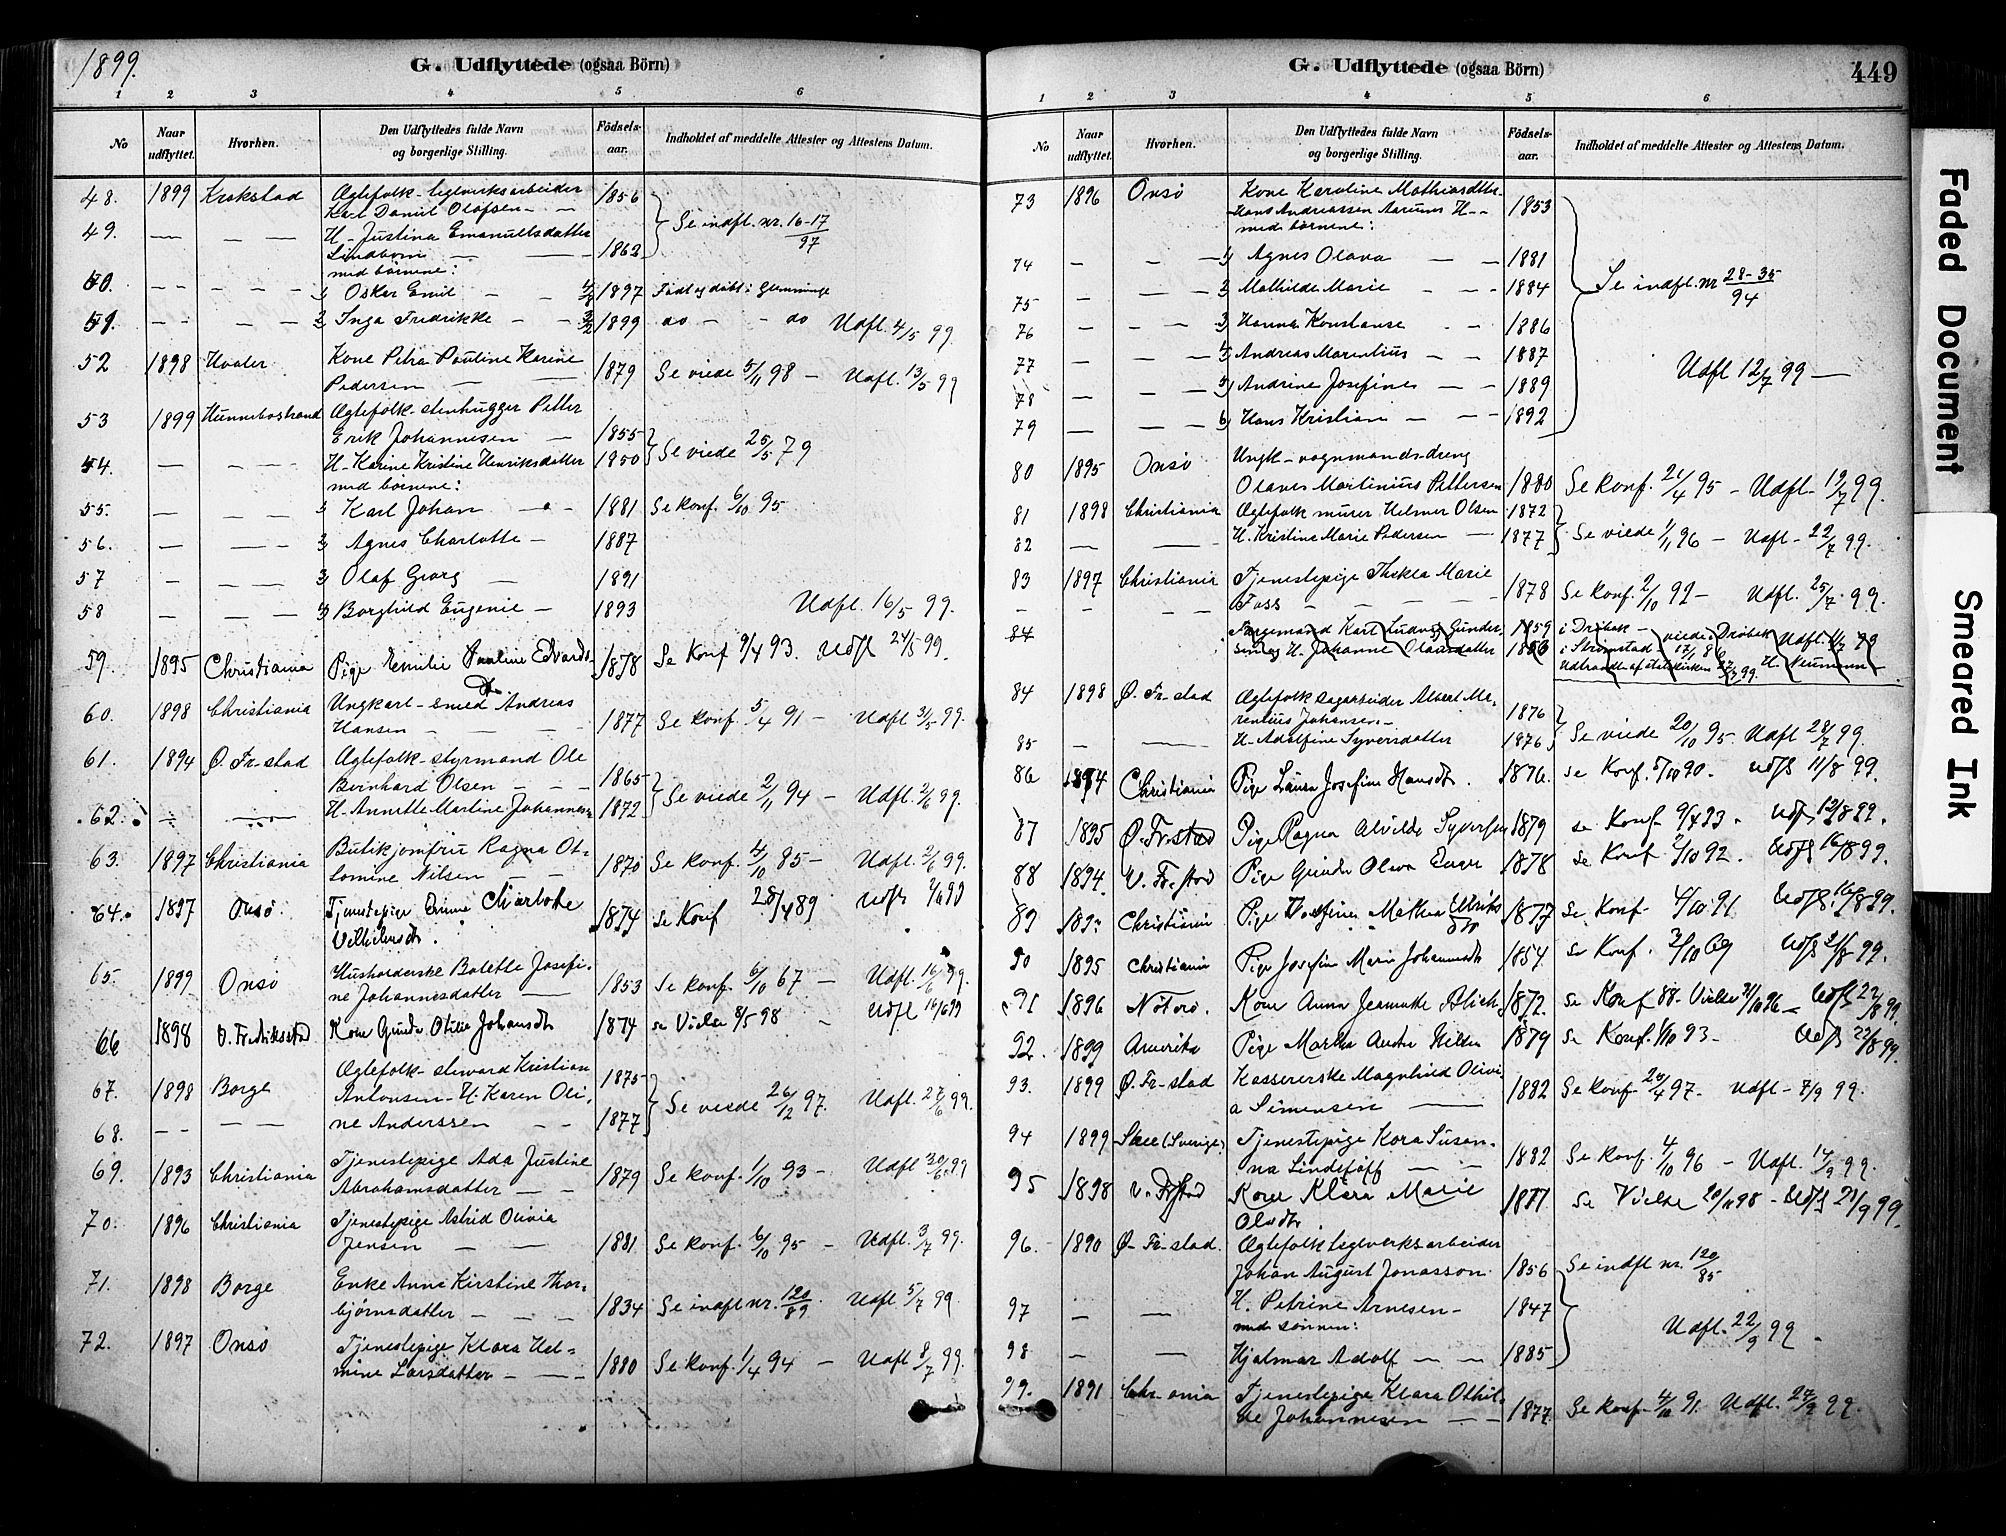 1899.
G. Udflyttede (ogsaa Börn)
1 2 3 4 5 6
No Naar udflyttet. Hvorhen. Den Udflyttedes fulde Navn og borgerlige Stilling. Födsels-aar. Indholdet af meddelte Attester og Attestens Datum.
48. 1899 Krokstad Ægtefolk- teglverksarbeider
Karl Daniel Olafsen 1856
49. — — — H. Justina Emanuelsdatter
Lindbom 1862 Se indfl. nr. 16-17/97
med börnene:
50. — — — 1) Oskar Emil 1897 Födt og döbt i Glemminge
51. — — — 2) Inga Fredrikke 1899 do — do Udfl. 4/5 99.
52 1898 Hvaler Kone Petra Pauline Karine
Pedersen 1879 Se viede 5/11 98 — Udfl. 13/5 99
53 1899 Hunnebostrand Ægtefolk- stenhugger Petter
Erik Johannesen 1855
54. — — H. Karine Kristine Henriksdatter 1850 Se viede 25/5 79
med börnene:
55. — — Karl Johan 1881 Se konf. 6/10 95
56. — — Agnes Charlotte — 1887
57 — — 3) Olaf Georg 1891
58 — — Borghild Eugenie — 1893 Udfl. 16/5 99.
59. 1895 Christiania Pige Emilie Pauline Edvards-
dtr 1878 Se Konf 9/4 93. Udfl 24/5 99.
60. 1898 Christiania Ungkarl- smed Andreas
Hansen 1877 Se konf. 5/4 91 — Udfl 31/5 99.
61. 1894 Ø. Fr-stad Ægtefolk- styrmand Ole
Bernhard Olsen 1865
62. — — H. Annette Martine Johannesen 1872 Se viede 2/11 94 — Udfl. 2/6 99.
63. 1897 Christiania Butikjomfru Ragna Ot-
tomine Nilsen 1870 Se konf. 4/10 85 — Udfl. 2/6 99.
64. 1897 Onsö. Tjenestepige Emma Charlotte
Vilhelmsdtr. 1874 se Konf 28/4 89 Udfl
65. 1899 Onsö Husholderske Bolette Josefi-
ne Johannesdatter 1853 Se konf. 6/10 67 — Udfl. 16/6 99.
66 1898 V. Fredriksstad Kone Gunda Otilie Johansdtr 1874 se Vielse 8/5 98 — Udfl 16/6 99
67. 1898 Borge Ægtefolk- steward Kristian 1875
Antonsen- H. Karen Oli-
68. — — ne Anderssen 1877 Se viede 26/12 97. Udfl. 27/6 99.
69. 1893 Christiania Tjenestepige Ada Justine
Abrahamsdatter 1879 Se konf. 1/10 93 — Udfl 30/6 99
70. 1896 Christiania Tjenestepige Astrid Olivia
Jensen 1881 Se konf. 6/10 95 — Udfl. 3/7 99.
71. 1898 Borge Enke Anne Kirstine Thor-
björnsdatter 1834 Se indfl nr. 120/89. Udfl 5/7 99.
72. 1897 Onsö Tjenestepige Klara Hel-
mine Larsdatter 1880 Se konf. 1/4 94 — Udfl 8/7 99.
G. Udflyttede (ogsaa Börn)
449
1 2 3 4 5 6
No Naar udflyttet. Hvorhen. Den Udflyttedes fulde Navn og borgerlige Stilling. Födsels-aar. Indholdet af meddelte Attester og Attestens Datum.
73 1896 Onsö Kone Karoline Mathiasdtter
Hans Andreassen Aarums H. 1853
med börnene:
74 — — 1) Agnes Olava 1881
75 — — 2) Mathilde Marie 1884 Se indfl. nr 28-35/94
76 — — 3) Hanna Konstanse 1886
77 — — 4) Andreas Marentius 1887 Udfl 12/7 99 —
78 — — 5) Andrine Josefine 1889
79 — — 6) Hans Kristian 1892
80 1895 Onsö Ungk- vognmandsdreng
Olaves Martinius Pettersen 1880 Se konf. 21/4 95 — Udfl. 19/7 99.
81 1898 Christiania Ægtefolk murer Helmer Olsen 1872
82 — — H. Kristine Marie Pedersen 1877 Se viede 1/11 96 — Udfl. 22/7 99.
83 1897 Christiania Tjenestepige Thekla Marie
Foss 1878 Se konf. 2/10 92 — Udfl. 25/7 99.
84 Karl Ludvig Gunder- 1859 i Dröbak — viede i Dröbak Udfl.
H. Johanne Olausdatter i Strömstad H. Neumann
84 1898 Ø. Fr-stad Ægtefolk sagarbeider Albert Ma-
rentius Johansen 1876
85 — — H. Adolfine Syversdatter 1876 Se viede 20/10 95. Udfl 28/7 99.
86 1894 Christiania Pige Laura Josefine Hansdtr. 1876. se Konf. 5/10 90. Udfl 11/8 99.
87 1895 Ø. Frstad Pige Ragna Alvilde Syversen 1879 se Konf 9/4 93. Udfl 12/8 99.
88 1894. V. Fr-stad Pige Gunda Olava 1878 se Konf 2/10 92. Udfl 16/8 99.
89 Christiania Pige Josefine Mathea 1877 se Konf 4/10 91 Udfl. 16/8 99.
90 1895 Christiania Pige Josefine Marie Johannesdtr 1854 se Konf. 3/10 69 Udfl 21/8 99.
91 1896 Nöterö. Kone Anna Jeanette 1872. se Konf 88- Vielse Udfl 22/8 99.
92. 1899 Amerika Pige Martha 1879 se Konf. 1/10 93 — Udfl 22/8 99.
93. 1899 Ø. Fr-stad Kassererske Magnhild Olivi-
a Simensen 1882 Se konf 25/4 97. Udfl — 7/9 99.
94 1899 Skee (Sverige) Tjenestepige Kora Susan-
na Lindelöff 1882 Se konf. 4/10 96 — Udfl. 14/9 99.
95 1898 V. Frstad Kone Klara Marie
Olsdtr. 1877 se Vielse 20/11 98 — Udfl 21/9 99.
96. 1890 Ø. Fr-stad. Ægtefolk teglverksarbeider
Johan August Jonasson 1856 Se indfl nr. 120/85
97 — — H. Petrine Arnesen 1847
med sönnen: Udfl. 22/9 99
98 — — Hjalmar Adolf 1885
99. 1891 Chr-ania Tjenestepige Klara Othil-
de Johannesen 1877 Se konf. 4/10 91. Udfl. 27/9 99.
Faded Document
Smeared Ink